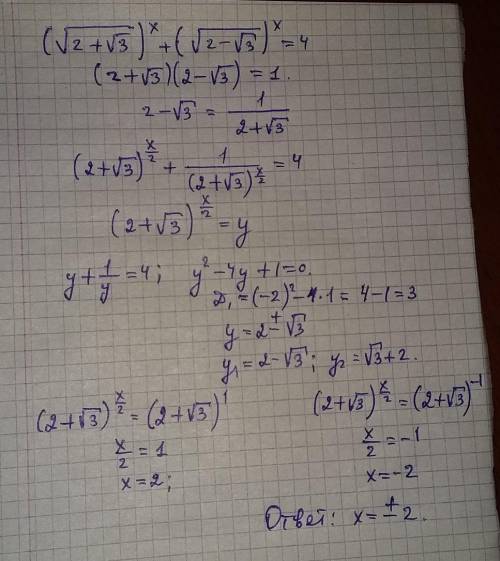 (√(2+√3))^x + (√(2-√3))^x = 4
(2+√3)(2-√3) = 1.
2-√3 = 1/(2+√3)
(2+√3)^(x/2) + 1/(2+√3)^(x/2) = 4
(2+√3)^(x/2) = y
y + 1/y = 4; y² - 4y + 1 = 0.
D₁ = (-2)² - 1·1 = 4-1 = 3
y = 2 ± √3
y₁ = 2-√3; y₂ = √3+2.
(2+√3)^(x/2) = (2+√3)^1
x/2 = 1
x = 2;
(2+√3)^(x/2) = (2+√3)^-1
x/2 = -1
x = -2
Ответ: x = ± 2.